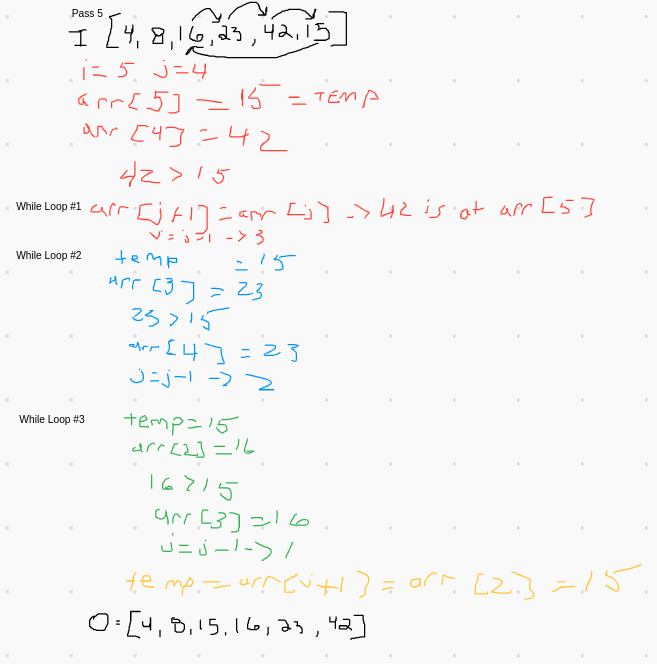 Pass 5
I [4, 8, 16, 23, 42, 15]
i = 5 j = 4
arr[5] = 15 = TEMP
arr [4] = 42
42 > 15
While Loop #1 arr[j+1] = arr [j] -> 42 is at arr [5]
j = j - 1 -> 3
While Loop #2 temp = 15
arr [3] = 23
23 > 15
arr [4] = 23
j = j - 1 -> 2
While Loop #3 temp = 15
arr[2] = 16
16 > 15
arr [3] = 16
j = j - 1 -> 1
temp = arr[j+1] = arr [2] = 15
O = [4, 8, 15, 16, 23, 42]